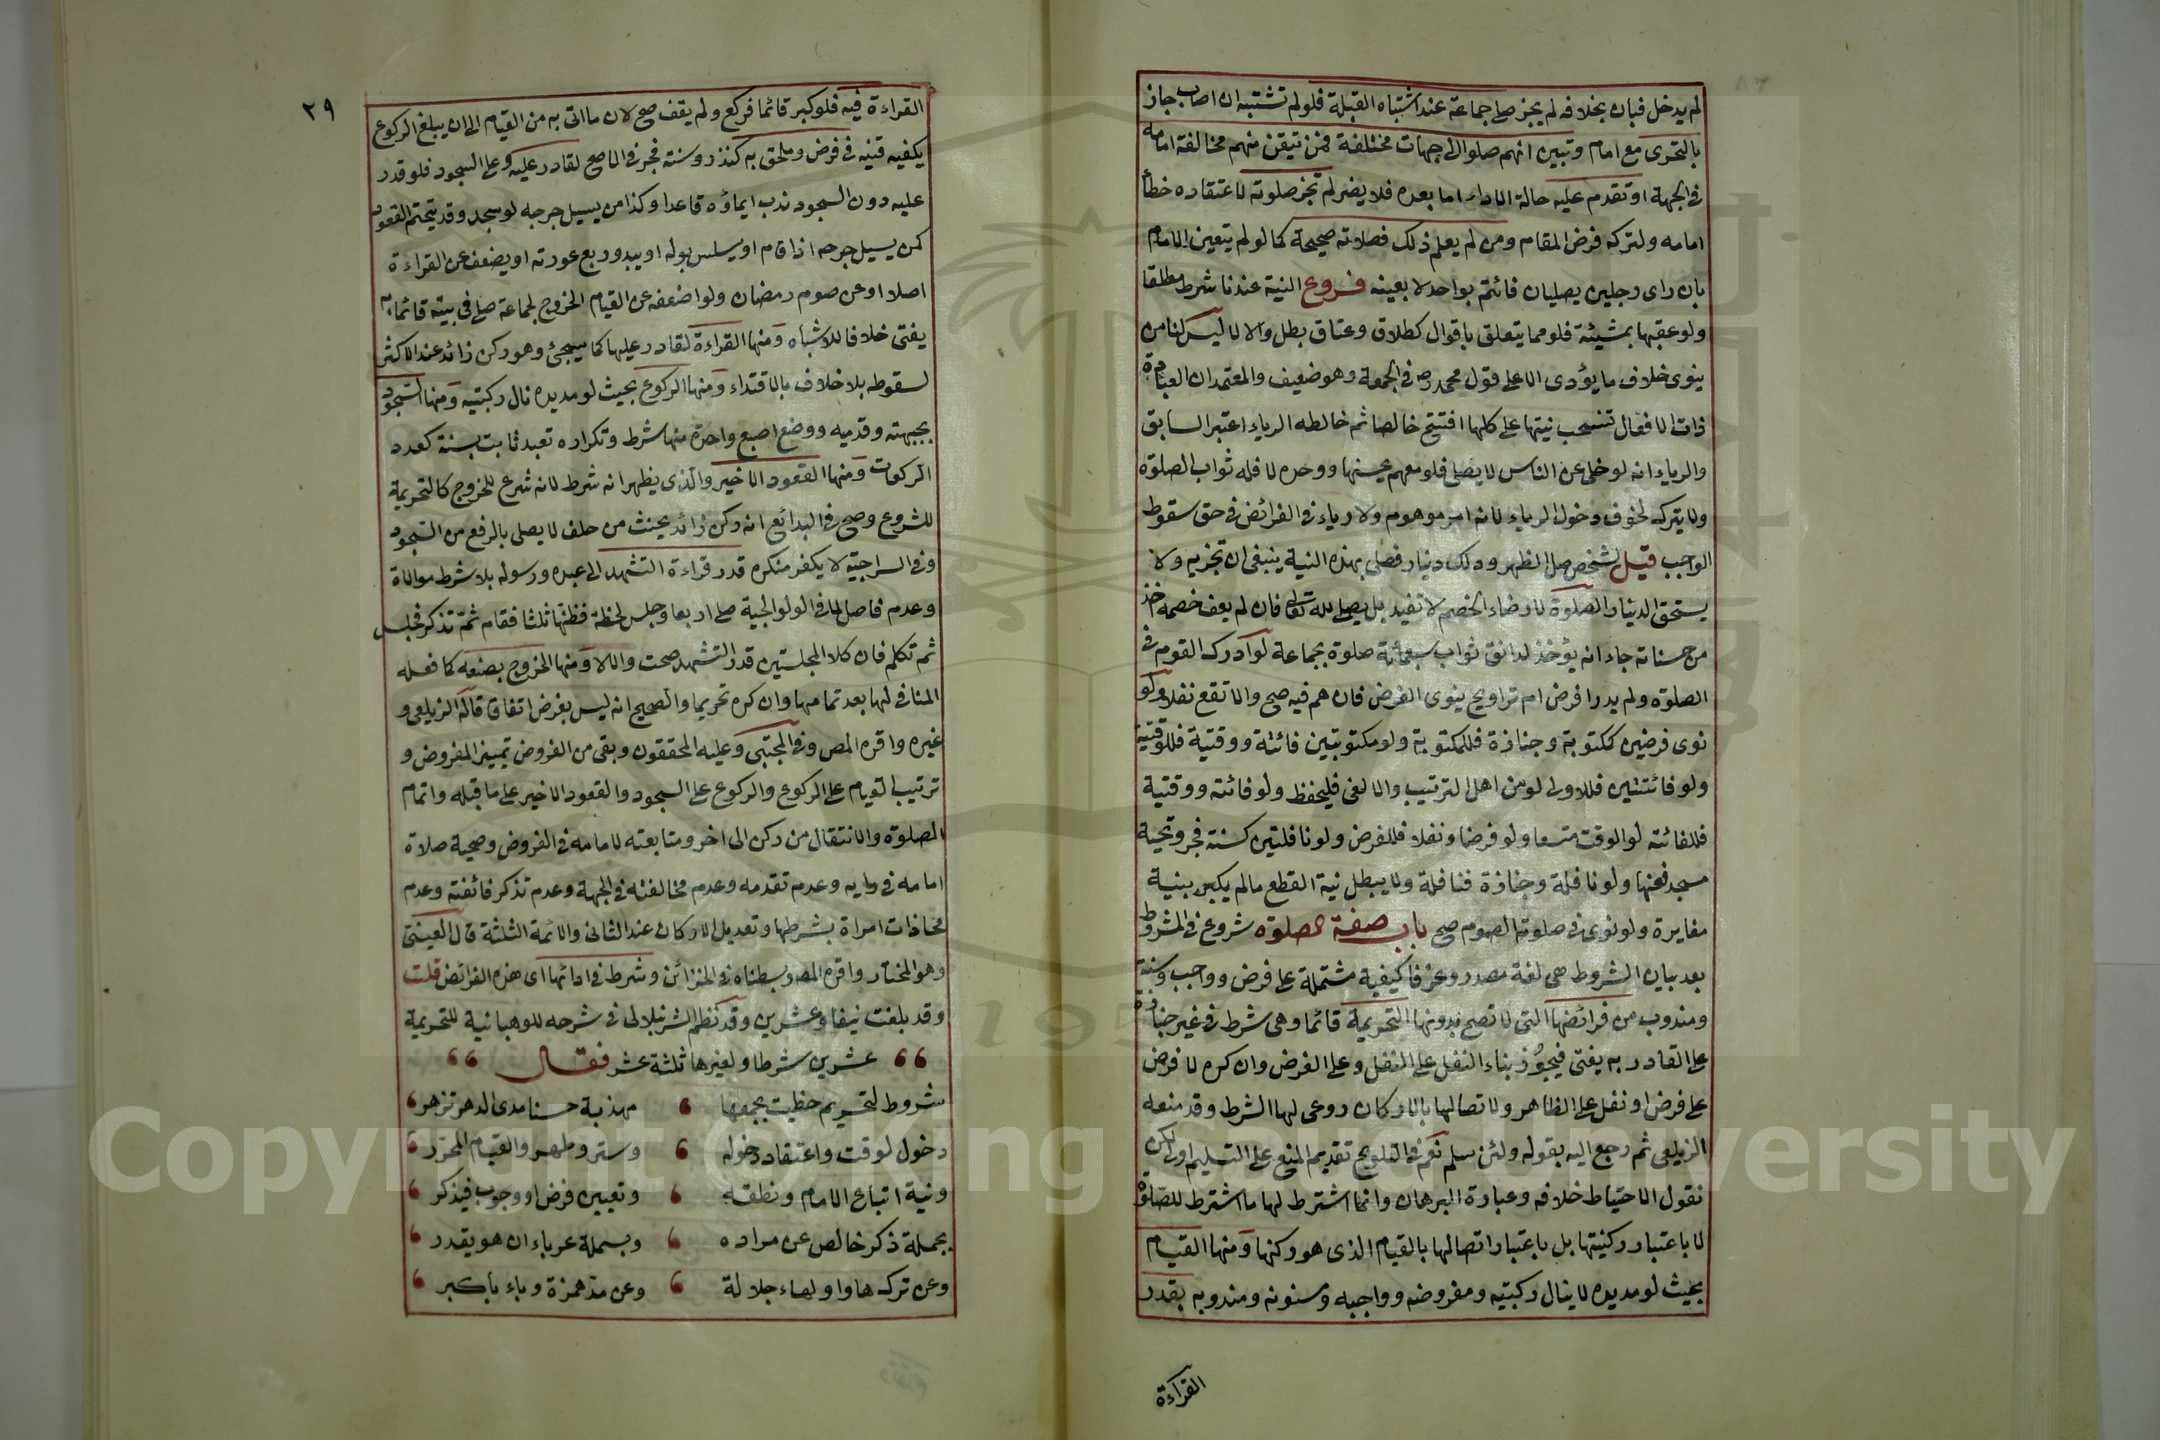 لم يدخل فبان بخلافه لم يجز صلى جماعة عند اشتباه القبلة فلو لم تشتبه ان اصاب جاز
بالتحرى مع امام وتبين انهم صلوا الى جهات مختلفة فمن تيقن منهم مخالفة امامه
فى الجهة او تقدم عليه حالة الاداء اما بعده فلا يضر لم تجز صلوته لاعتقاده خطأ
امامه ولتركه فرض المقام ومن لم يعلم ذلك فصلاته صحيحة كما لو لم يتعين الامام
بان راى رجلين يصليان فائتم بواحد لا بعينه فروع النية عندنا شرط مطلقا
ولو عقبها بمشيئة فلو مما يتعلق باقوال كطلاق وعتاق بطل والا لا ليس لنا من
ينوى خلاف ما يؤدى الا على قول محمد ره فى الجمعة وهو ضعيف والمعتمد ان العبادة
ذات الافعال تنسحب نيتها على كلها افتتح خالصا ثم خالطه الرياء اعتبر السابق
والرياء انه لو خلى عن الناس لا يصلى فلو معهم يحسنها ووحده لا فله ثواب الصلوة
ولا يترك لخوف دخول الرياء لانه امر موهوم ولا رياء فى الفرائض فى حق سقوط
الواجب قيل لشخص صل الظهر ولك دينار فصلى بهذه النية ينبغى ان تجزيه ولا
يستحق الدينار الصلوة لارضاء الخصم لا تفيد بل يصلى لله تعالى فان لم يعف خصمه اخذ
من حسناته جاء انه يؤخذ لدانق ثواب سبعمائة صلوة بجماعة لو ادرك القوم فى
الصلوة ولم يدر افرض ام تراويح ينوى الفرض فان هم فيه صح والا تقع نفلا ولو
نوى فرضين كمكتوبة وجنازة فللمكتوبة ولو مكتوبتين فائتة ووقتية فللوقتية
ولو فائتتين فللاولى لو من اهل الترتيب والا لغى فليحفظ ولو فائتة ووقتية
فللفائتة لو الوقت متسعا ولو فرضا ونفلا فللفرض ولو نافلتين كسنة فجر وتحية
مسجد فعنها ولو نافلة وجنازة فنافلة ولا يبطل نية القطع ما لم يكبر بنية
مغايرة ولو نوى فى صلوته الصوم صح باب صفة الصلوة شروع فى المشروط
بعد بيان الشروط هى لغة مصدر وعرفا كيفية مشتملة على فرض وواجب وسنة
ومندوب من فرائضها التى لا تصح بدونها التحريمة قائما وهى شرط فى غير جنازة
على القادر به يفتى فيجوز بناء النفل على النفل وعلى الفرض وان كره لا فرض
على فرض او نفل على الظاهر ولاتصالها بالاركان روعى لها الشرط وقد منعه
الزيلعى ثم رجع اليه بقوله ولئن سلم نعم فى التلويح تقديم المنع على التسليم اولى لكن
نقول الاحتياط خلافه وعبارة البرهان وانما اشترط لها ما اشترط للصلوة
لا باعتبار ركنيتها بل باعتبار اتصالها بالقيام الذى هو ركنها ومنها القيام
بحيث لو مد يده لا ينال ركبتيه ومفروضه وواجبه ومسنونه ومندوبه بقدر
القراءة
٢٩
القراءة فيه فلو كبر قائما فركع ولم يقف صح لان ما اتى به من القيام الى ان يبلغ الركوع
يكفيه قنيه فى فرض وملحق به كنذر وسنة فجر فى الاصح لقادر عليه وعلى السجود فلو قدر
عليه دون السجود ندب ايماؤه قاعدا وكذا من يسيل جرحه لو سجد وقد يتحتم القعود
كمن يسيل جرحه اذا قام او يسلس بوله او يبدو ربع عورته او يضعف عن القراءة
اصلا او عن صوم رمضان ولو اضعفه عن القيام الخروج لجماعة صلى فى بيته قائما به
يفتى خلافا للاشباه ومنها القراءة لقادر عليها كما سيجئ وهو ركن زائد عند الاكثر
لسقوطه بلا خلاف بالاقتداء ومنها الركوع بحيث لو مد يده نال ركبتيه ومنها السجود
بجبهته وقدميه ووضع اصبع واحدة منها شرط وتكراره تعبد ثابت بسنة كعدد
الركعات ومنها القعود الاخير والذى يظهر انه شرط لانه شرع للخروج كالتحريمة
للشروع وصح فى البدائع انه ركن زائد يحنث من حلف لا يصلى بالرفع من السجود
وفى السراجية لا يكفر منكره قدر قراءة التشهد الى عبده ورسوله بلا شرط موالاة
وعدم فاصل لما فى الولوالجية صلى اربعا وجلس لحظة فظنها ثلثا فقام ثم تذكر فجلس
ثم تكلم فان كلا المجلستين قدر التشهد صحت والا لا ومنها الخروج بصنعه كفعله
المنافى لها بعد تمامها وان كره تحريما والصحيح انه ليس بفرض اتفاقا قاله الزيلعى و
غيره واقره المص وفى المجتبى وعليه المحققون وبقى من الفروض تمييز المفروض و
ترتيب القيام على الركوع والركوع على السجود والقعود الاخير على ما قبله واتمام
الصلوة والانتقال من ركن الى اخر ومتابعته لامامه فى الفروض وصحة صلاة
امامه فى رايه وعدم تقدمه وعدم مخالفته فى الجهة وعدم تذكر فائتة وعدم
محاذات امراة بشرطها وتعديل الاركان عند الثانى والائمة الثلثة قال العينى
وهو المختار واقره المص وبسطناه فى الخزائن وشرط فى ادائها اى هذه الفرائض قلت
وقد بلغت نيفا وعشرين وقد نظم الشرنبلالى فى شرحه للوهبانية للتحريمة
عشرين شرطا ولغيرها ثلثة عشر فقال
شروط لتحريم حظيت بجمعها مهذبة حسنا مدى الدهر تزهر
دخول لوقت واعتقاد دخوله وستر وطهر والقيام المحرر
ونية اتباع الامام ونطقه وتعيين فرض او وجوب فيذكر
بجملة ذكر خالص عن مراده وبسملة عرباء ان هو يقدر
وعن ترك هاو او لهاء جلالة وعن مد همزة وباء باكبر
Copyright © King Saud University
1957